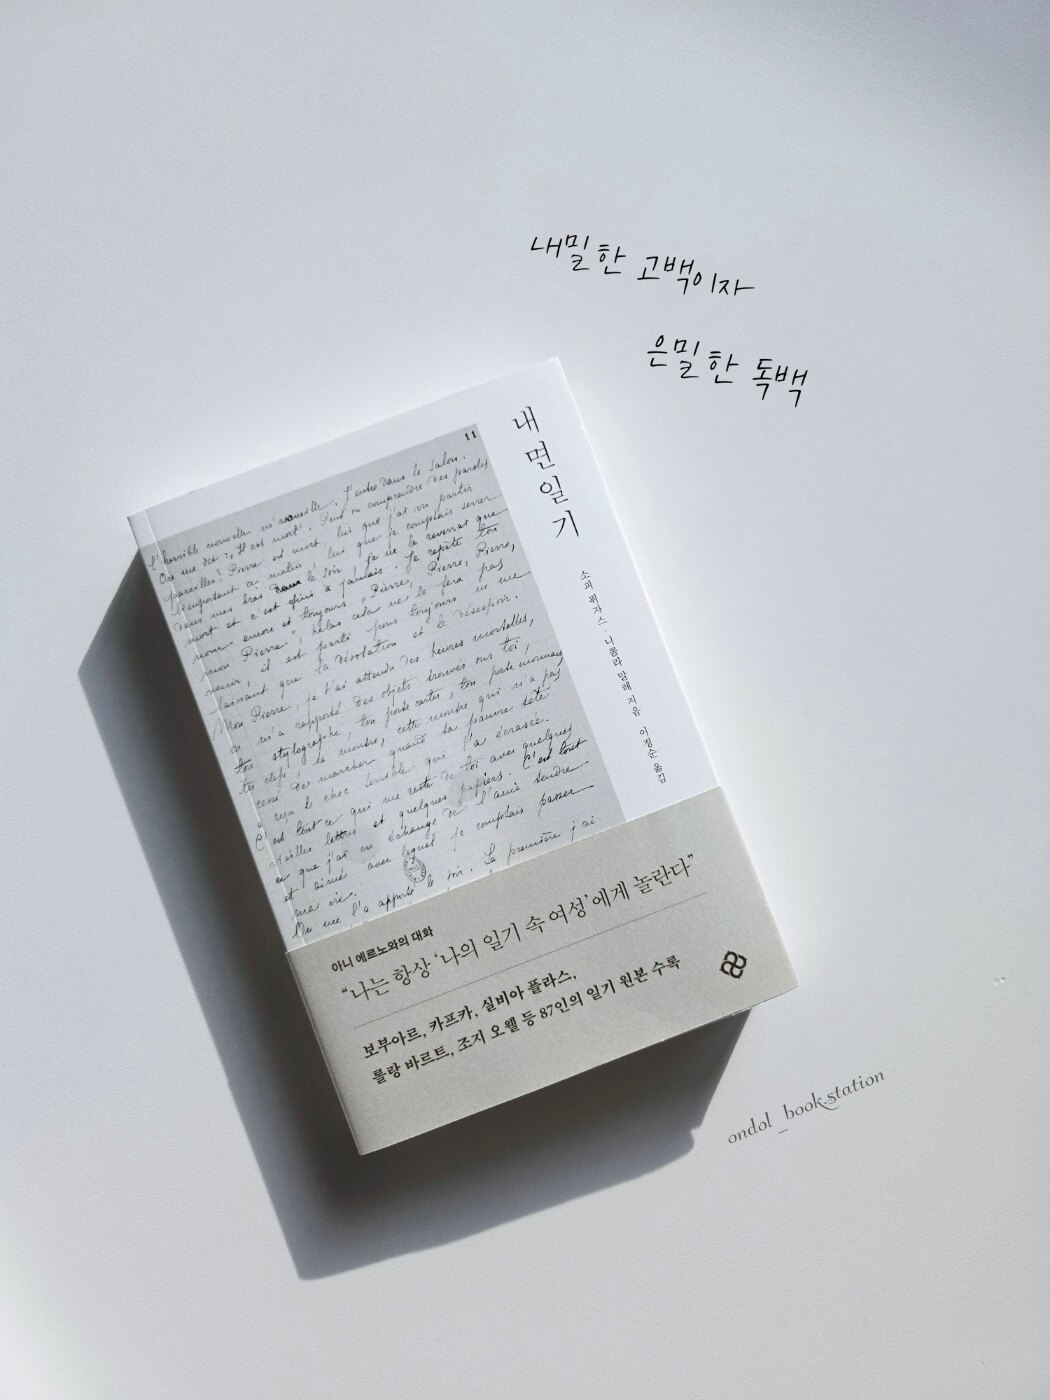 내밀한 고백이자
은밀한 독백
내면일기
소피 퓌자스 · 니콜라 말레 지음 이정순 옮김
11
L'horrible nouvelle m'accueille. J'entre dans le salon.
On me dit : "Il est mort". Peut on comprendre des paroles
pareilles? Pierre est mort, lui que j'ai vu partir
bien portant ce matin, lui que je comptais serrer
dans mes bras le soir, je ne le reverrai que
mort et c'est fini à jamais. Je répète ton
nom encore et toujours "Pierre, Pierre, Pierre,
mon Pierre", hélas cela ne le fera pas
venir, il est parti pour toujours ne me
laissant que la désolation et le désespoir.
Mon Pierre, je t'ai attendu des heures mortelles,
on m'a rapporté des objets trouvés sur toi,
ton stylographe, ton porte cartes, ton porte monnaie
tes clefs, ta montre, cette montre qui n'a pas
cessé de marcher quand ta pauvre tête
a reçu le choc terrible qui l'a écrasée.
C'est tout ce qui me reste de toi avec quelques
vieilles lettres et quelques papiers. C'est tout
ce que j'ai en échange de l'ami tendre
et aimé avec lequel je comptais passer
ma vie.
On me l'a apporté le soir. La première j'ai
아니 에르노와의 대화
“나는 항상 ‘나의 일기 속 여성’에게 놀란다”
보부아르, 카프카, 실비아 플라스,
롤랑 바르트, 조지 오웰 등 87인의 일기 원본 수록
ondol_book.station